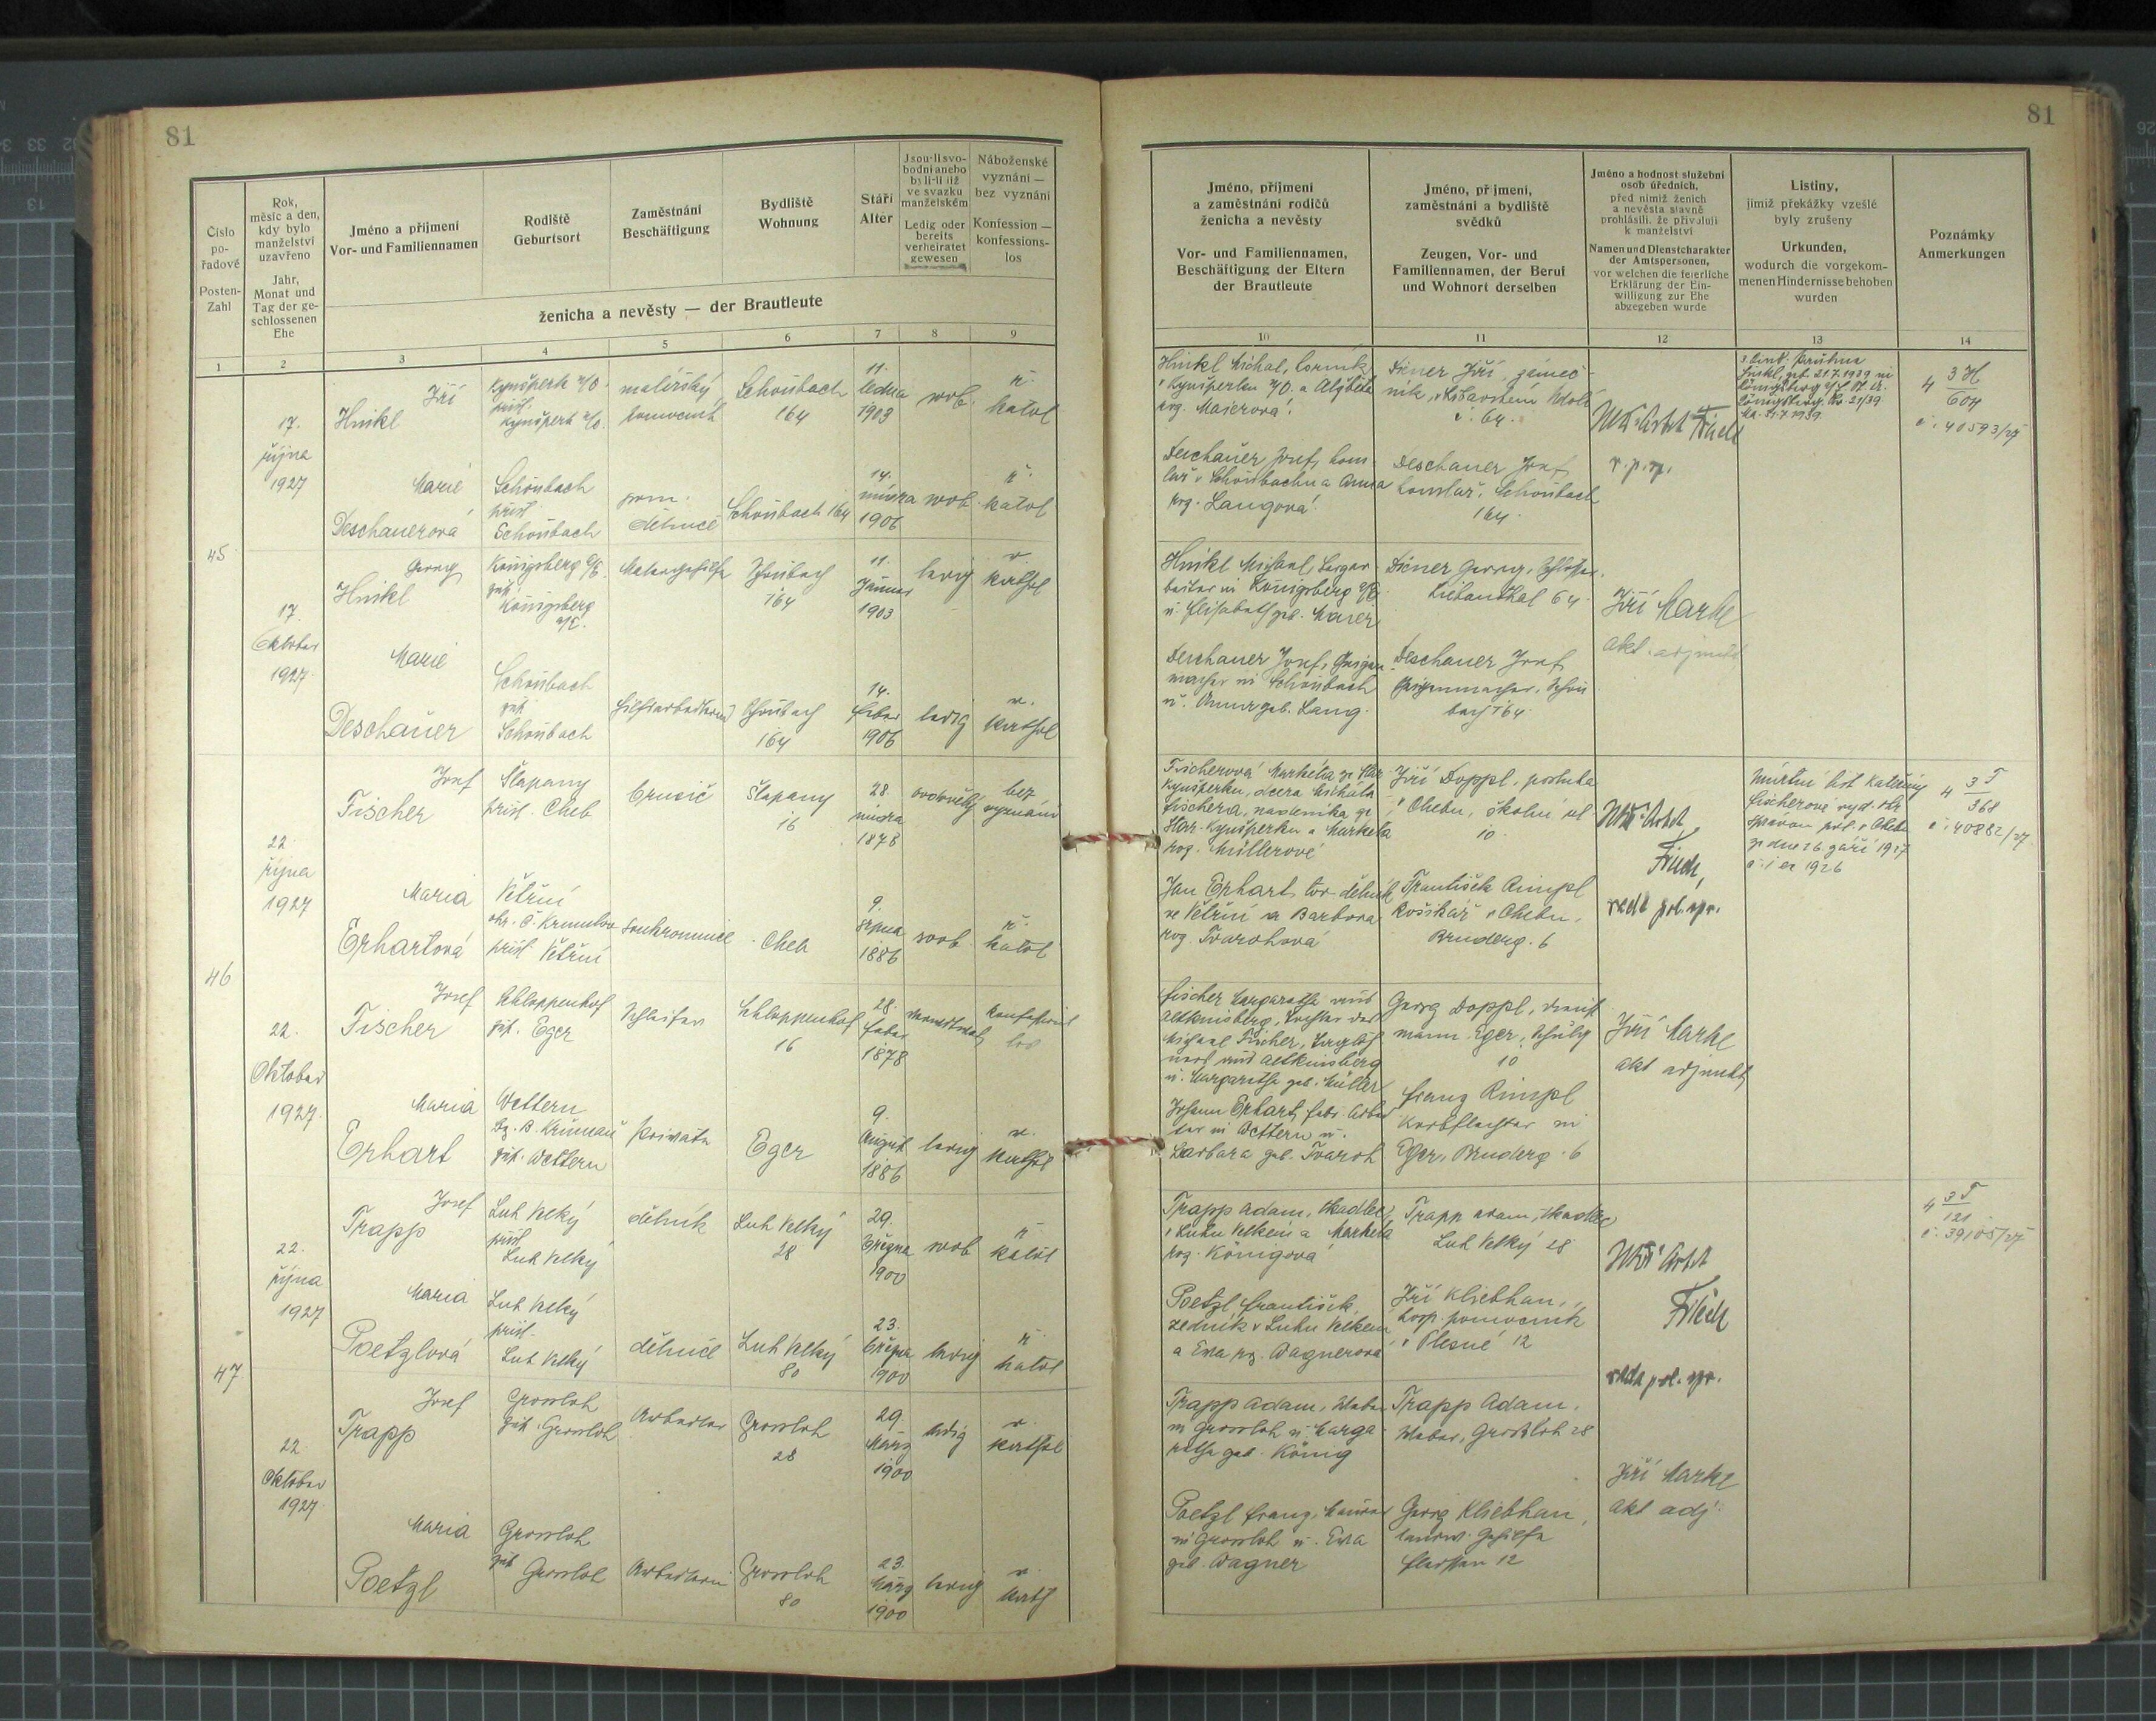 81
81
Číslo pořadové
Posten-Zahl
Rok, měsíc a den, kdy bylo manželství uzavřeno
Jahr, Monat und Tag der geschlossenen Ehe
Jméno a přijmení
Vor- und Familiennamen
Rodiště
Geburtsort
Zaměstnání
Beschäftigung
Bydliště
Wohnung
Stáří
Alter
Jsou-li svobodni anebo byli-li již ve svazku manželském
Ledig oder bereits verheiratet gewesen
Náboženské vyznání — bez vyznání
Konfession — konfessionslos
ženicha a nevěsty — der Brautleute
1 2 3 4 5 6 7 8 9
45
17. října 1927
Jiří
Hinkl
Kynšperk n/O.
přísl.
Kynšperk n/O.
malířský
pomocník
Schönbach
164
11.
ledna
1903
svob.
ř.
katol
Marie
Deschauerová
Schönbach
přísl
Schönbach
pom.
dělnice
Schönbach 164
14.
února
1906
svob.
ř.
katol
17.
Oktober
1927
Georg
Hinkl
Königsberg a/E.
zust.
Königsberg
a/E.
Malergehilfe
Schönbach
164
11.
Jänner
1903
ledig
r.
kathol
Marie
Deschauer
Schönbach
zust.
Schönbach
Hilfsarbeiterin
Schönbach
164
14.
Feber
1906
ledig
r.
kathol
46
22.
října
1927
Josef
Fischer
Šlapany
přísl. Cheb
brusič
Šlapany
16
28.
února
1878
ovdovělý
bez
vyznání
Maria
Erhartová
Větřní
okr. Č. Krumlov
přísl Větřní
soukromnice
Cheb
9.
srpna
1886
svob.
ř.
katol
22.
Oktober
1927.
Josef
Fischer
Schloppenhof
zust. Eger
Schleifer
Schloppenhof
16
28.
Feber
1878
verwitwet
konfessions
los
Maria
Erhart
Wettern
Bz. B. Krumau
zust. Wettern
Private
Eger
9.
August
1886
ledig
r.
kathol
47
22.
října
1927
Josef
Trapp
Luh Velký
přísl
Luh Velký
dělník
Luh Velký
28
29.
března
1900
svob
ř.
katol
Maria
Poetzlová
Luh Velký
přísl.
Luh Velký
dělnice
Luh Velký
80
23.
března
1900
ledig
ř.
katol
22.
Oktober
1927.
Josef
Trapp
Grossloh
zust. Grossloh
Arbeiter
Grossloh
28
29.
März
1900
ledig
r.
kathol
Maria
Poetzl
Grossloh
zust. Grossloh
Arbeiterin
Grossloh
80
23.
März
1900
ledig
r.
kath
Jméno, přijmení a zaměstnání rodičů ženicha a nevěsty
Vor- und Familiennamen, Beschäftigung der Eltern der Brautleute
Jméno, přijmení, zaměstnání a bydliště svědků
Zeugen, Vor- und Familiennamen, der Beruf und Wohnort derselben
Jméno a hodnost služební osob úředních, před nimiž ženich a nevěsta slavně prohlásili, že přivolují k manželství
Namen und Dienstcharakter der Amtspersonen, vor welchen die feierliche Erklärung der Einwilligung zur Ehe abgegeben wurde
Listiny, jimiž překážky vzešlé byly zrušeny
Urkunden, wodurch die vorgekommenen Hindernisse behoben wurden
Poznámky
Anmerkungen
10 11 12 13 14
Hinkl Michal,
v Kynšperku n/O. a Alžběta
roz. Maierová.
Diener Jiří, zámeč
ník,
č. 64.
Königsberg
21/39
21.7.1939.
4 3 H
604
č. 40593/27
Deschauer Josef, hous
lař v Schönbachu a Anna
roz. Langová.
Deschauer Josef,
houslař, Schönbach
164.
r. p. s.
Hinkl Michael,
in Königsberg a/E.
u. Elisabeth geb. Maier
Diener Georg, Schlosser,
Liebenthal 64.
Jiří Marke
akt. adjunkt
Deschauer Josef, Geigen
macher in Schönbach
u. Anna geb. Lang.
Deschauer Josef,
Geigenmacher, Schön
bach 164.
Fischerová Markéta ze Star.
Kynšperku, dcera Michala
Fischera, nádeníka ze
Star. Kynšperku a Markéta
roz. Müllerové
Jiří Doppl, posluha
v Chebu, školní ul
10.
Friedl,
rada pol. spr.
Úmrtní list Kateřiny
Fischerové vyd.
správou pol. v Chebu
ze dne 26. září 1927
4 3 F
368
č. 40882/27
Jan Erhart, tov. dělník
ve Větřní a Barbora
roz. Tvarohová
František Rimpl
košíkář v Chebu,
Bruderg. 6
Fischer Margarethe aus
Altkinsberg, Tochter des
Michael Fischer, Taglöh
ners aus Altkinsberg
u. Margarethe geb. Müller
Georg Doppl, Dienst
mann Eger, Schulg
10
Jiří Marke
akt adjunkt
Johann Erhart, Fabr. Arbei
ter in Wettern u.
Barbara geb. Tvaroh
Franz Rimpl
Korbflechter in
Eger, Bruderg. 6
Trapp Adam, tkadlec,
v Luhu Velkém a Markéta
roz. Königová
Trapp Adam, tkadlec,
Luh Velký 28
4 3 T
121
č. 39105/27
Poetzl František,
zedník v Luhu Velkém
a Eva roz. Wagnerová
Jiří Kliebhan,
hosp. pomocník
v Plesné 12
rada pol. spr.
Trapp Adam, Weber
in Grossloh u. Marga
rethe geb. König
Trapp Adam,
Weber, Grossloh 28
Jiří Marke
akt adj.
Poetzl Franz, Maurer
in Grossloh u. Eva
geb. Wagner
Georg Kliebhan,
landw. Gehilfe
Fleissen 12